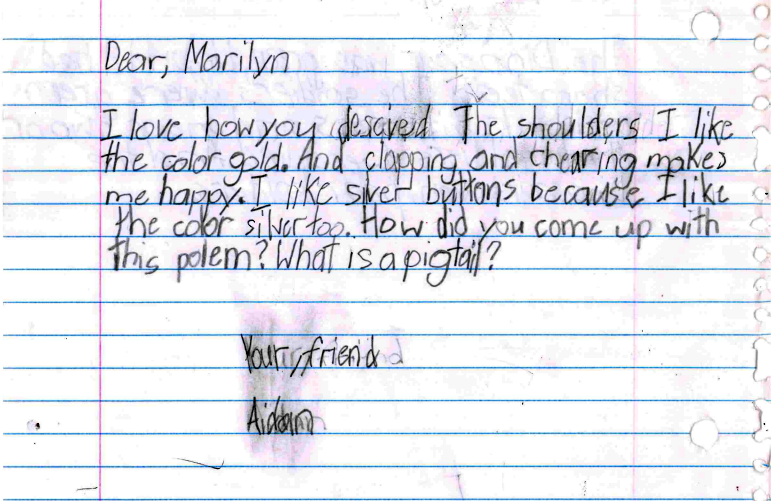 Dear, Marilyn
I love how you descived The shoulders I like
the color gold. And clapping and chearing makes
me happy. I like siver buttons because I like
the color silver too. How did you come up with
this polem? What is a pigtail?
Your, friend
Aidan